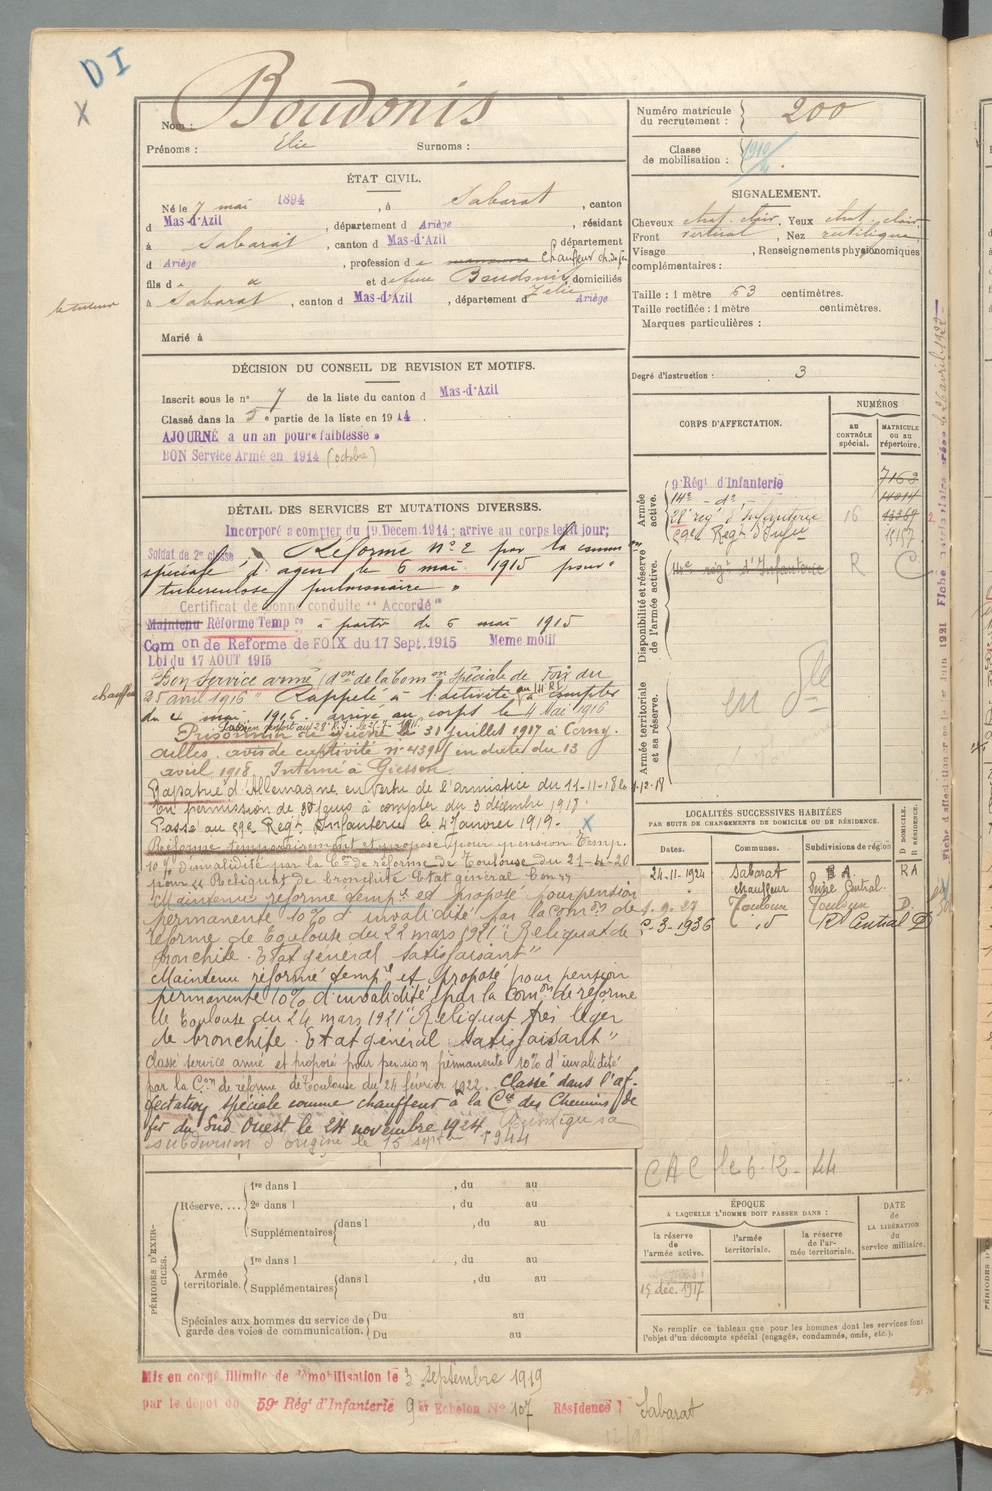 DI
X
Nom : Boudonis
Prénoms : Elie Surnoms :
Numéro matricule du recrutement : 200
Classe de mobilisation : 1910/4.
ÉTAT CIVIL.
Né le 7 mai 1894, à Sabarat, canton
d Mas-d'Azil, département d Ariège, résidant
à Sabarat, canton d Mas-d'Azil, département
d Ariège, profession d e Chauffeur
fils d et d Boudonis Zélie domiciliés
à Sabarat, canton d Mas-d'Azil, département d Ariège
Marié à
SIGNALEMENT.
Cheveux chat. clair. Yeux chat. clair.
Front vertical, Nez rectiligne
Visage , Renseignements physionomiques
complémentaires :
Taille : 1 mètre 53 centimètres.
Taille rectifiée : 1 mètre centimètres.
Marques particulières :
Degré d'instruction : 3
DÉCISION DU CONSEIL DE REVISION ET MOTIFS.
Inscrit sous le n° 7 de la liste du canton d Mas-d'Azil
Classé dans la 5e partie de la liste en 1914.
AJOURNÉ à un an pour « faiblesse »
BON Service Armé en 1914 (octobre)
CORPS D'AFFECTATION.
NUMÉROS
AU CONTRÔLE spécial.
MATRICULE OU AU répertoire.
Armée active.
9e Régt d'Infanterie 7163
14e - do -
28e régt d'Infanterie 16
59e Régt d'Infie 15157
Disponibilité et réserve de l'armée active.
14e régt d'Infanterie R C
Armée territoriale et sa réserve.
DÉTAIL DES SERVICES ET MUTATIONS DIVERSES.
Incorporé à compter du 19 Decem. 1914 ; arrivé au corps le dt jour;
Soldat de 2e classe, Réformé n° 2 par la comm on
spéciale d'agen le 6 mai 1915 pour «
tuberculose pulmonaire »
Certificat de bonne conduite "Accordé"
Maintenu Réforme Temp re à partir du 6 mai 1915
Com on de Reforme de FOIX du 17 Sept. 1915 Meme motif
Loi du 17 AOUT 1915
Bon service armé (don de la Com on spéciale de Foix du
25 avril 1916" Rappelé à l'activité au 14 R.I. à compter
du 4 mai 1916. arrivé au corps le 4 Mai 1916
Prisonnier de guerre le 31 juillet 1917 à Cerny.
Ailles. avis de captivité n° 4391 en date du 13
avril 1918. Interné à Giessen.
Rapatrié d'Allemagne, en vertu de l'armistice du 11-11-18 le 1-12-18
En permission de 30 jours à compter du 3 décembre 1917
Passé au 59e Régt. Infanterie le 4 Janvier 1919. X
Réformé temporairement et proposé pour pension Temp.
10 % d'invalidité par la Con de réforme de Toulouse du 21-4-20
pour « Reliquat de bronchite Etat général bon »
Maintenu réformé temp re et proposé pour pension
permanente 10% d'invalidité par la com on de
réforme de Toulouse du 22 mars 1921 "Reliquat de
bronchite. Etat général satisfaisant"
Maintenu réformé temp re et proposé pour pension
permanente 10% d'invalidité par la Com on de réforme
de Toulouse du 24 mars 1921 "Reliquat très léger
de bronchite. Etat général satisfaisant"
Classé service armé et proposé pour pension permanente 10% d'invalidité
par la Con de réforme de Toulouse du 24 février 1922. Classé dans l'af-
fectation spéciale comme chauffeur à la Cie des Chemins de
fer du Sud Ouest le 24 novembre 1924.
subdivision d'origine le 15 sept 1944
LOCALITÉS SUCCESSIVES HABITÉES
PAR SUITE DE CHANGEMENTS DE DOMICILE OU DE RÉSIDENCE.
Dates. Communes. Subdivisions de région D DOMICILE. R RÉSIDENCE.
24-11-1924 Sabarat R A
chauffeur
1. 9. 27 Toulouse Toulouse D.
2-3-1936 do Rt Central D
CAC le 6-12-44
ÉPOQUE
A LAQUELLE L'HOMME DOIT PASSER DANS :
la réserve de l'armée active.
l'armée territoriale.
la réserve de l'armée territoriale.
DATE de LA LIBÉRATION du service militaire.
15 déc. 1917
Ne remplir ce tableau que pour les hommes dont les services font l'objet d'un décompte spécial (engagés, condamnés, omis, etc.).
PÉRIODES D'EXERCICES.
Réserve. ...
1re dans l , du au
2e dans l , du au
Supplémentaires dans l , du au
Armée territoriale.
1re dans l , du au
Supplémentaires dans l , du au
Spéciales aux hommes du service de garde des voies de communication.
Du au
Du au
Mis en congé illimité de démobilisation le 3 septembre 1919
par le dépôt du 59e Régt d'Infanterie 9 er Echelon N° 107 Résidence à Sabarat